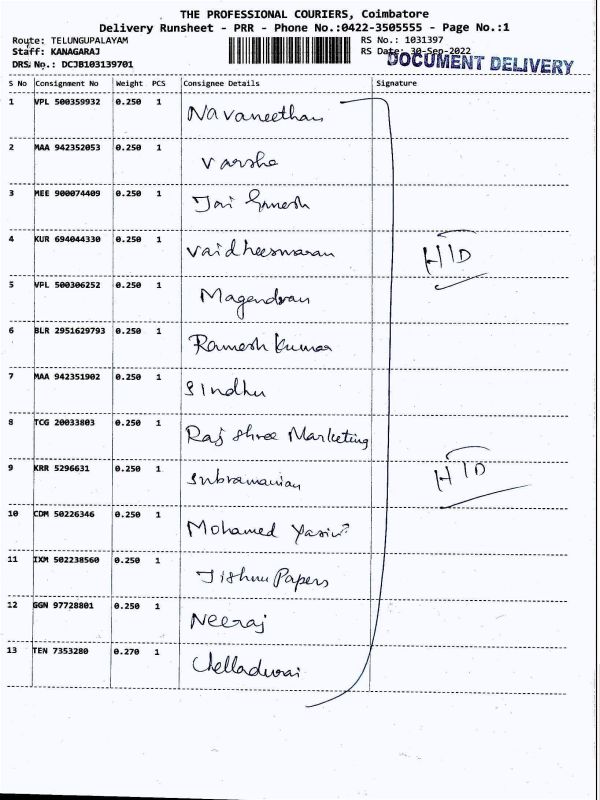 THE PROFESSIONAL COURIERS, Coimbatore
Delivery Runsheet - PRR - Phone No.:0422-3505555 - Page No.:1
Route: TELUNGUPALAYAM RS No.: 1031397
Staff: KANAGARAJ RS Date: 30-Sep-2022
DRS No.: DCJB103139701 DOCUMENT DELIVERY
S No Consignment No Weight PCS Consignee Details Signature
1 VPL 500359932 0.250 1 Navaneethan
2 MAA 942352053 0.250 1 Varsha
3 MEE 900074409 0.250 1 Jai Ganesh
4 KUR 694044330 0.250 1 Vaidheeswaran H/D
5 VPL 500306252 0.250 1 Magendran
6 BLR 2951629793 0.250 1 Ramesh Kumar
7 MAA 942351902 0.250 1 Sindhu
8 TCG 20033803 0.250 1 Raj Shree Marketing
9 KRR 5296631 0.250 1 Subramanian H/D
10 CDM 50226346 0.250 1 Mohamed Yasin
11 IXM 502238560 0.250 1 Jishnu Papers
12 GGN 97728801 0.250 1 Neeraj
13 TEN 7353280 0.270 1 Chelladurai